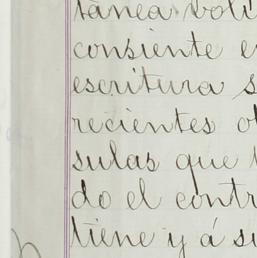 tánea voli
consiente e
escritura s
recientes o
sulas que
do el contr
tiene y á su